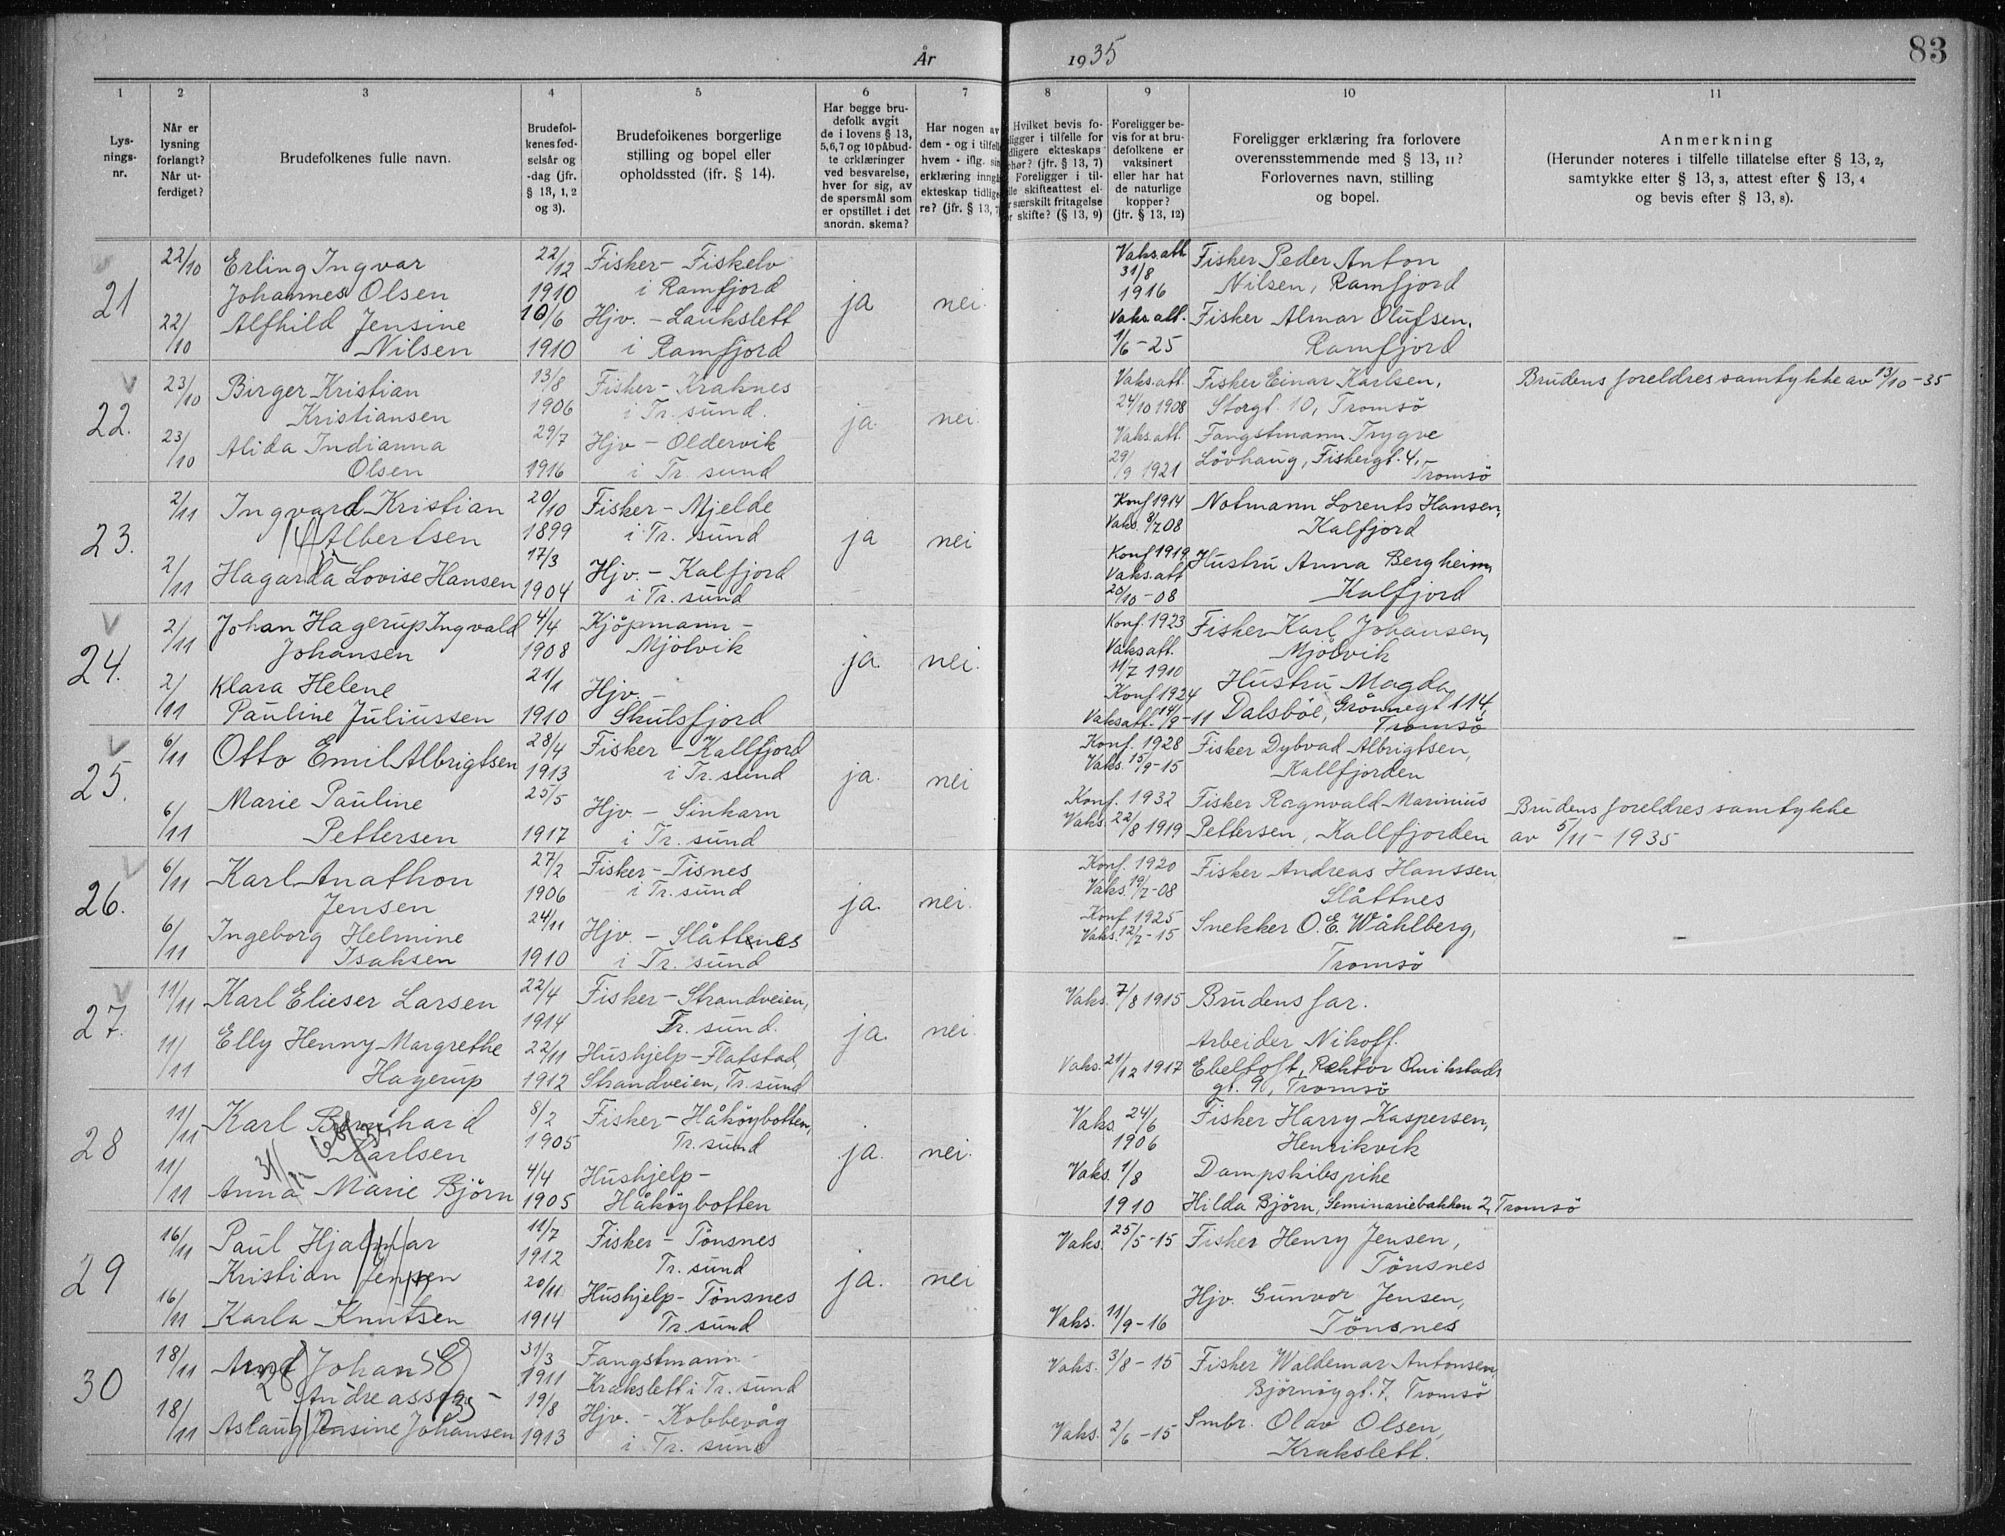 År 1935
83
1 2 3 4 5 6 7 8 9 10 11
Lys-
nings-
nr.
Når er
lysning
forlangt?
Når ut-
ferdiget?
Brudefolkenes fulle navn.
Brudefol-
kenes fød-
selsår og
-dag (jfr.
§ 13, 1, 2
og 3).
Brudefolkenes borgerlige
stilling og bopel eller
opholdssted (jfr. § 14).
Har begge bru-
defolk avgit
de i lovens § 13,
5,6,7 og 10 påbud-
te erklæringer
ved besvarelse,
hver for sig, av
de spørsmål som
er opstillet i det
anordn. skema?
Har nogen av
dem - og i tilfelle
hvem - iflg. sin
erklæring inngått
ekteskap tidlige-
re? (jfr. § 13, 7)
Hvilket bevis fo-
ligger i tilfelle for
dligere ekteskaps
hør? (jfr. § 13, 7)
Foreligger i til-
lle skifteattest el-
r særskilt fritagelse
r skifte? (§ 13, 9)
Foreligger be-
vis for at bru-
defolkene er
vaksinert
eller har hat
de naturlige
kopper?
(jfr. § 13, 12)
Foreligger erklæring fra forlovere
overensstemmende med § 13, 11?
Forlovernes navn, stilling
og bopel.
Anmerkning
(Herunder noteres i tilfelle tillatelse efter § 13, 2,
samtykke efter § 13, 3, attest efter § 13, 4
og bevis efter § 13, 8).
21
22/10 Erling Ingvar 22/12 Fisker - Fiskelv Vaks.att. Fisker Peder Anton
Johannes Olsen 1910 i Ramfjord ja nei. 31/8 1916 Nilsen, Ramfjord
22/10 Alfhild Jensine 10/6 Hjv. - Laukslett Vaks att. Fisker Almar Olufsen,
Nilsen 1910 i Ramfjord 1/6 - 25 Ramfjord
22.
23/10 Birger Kristian 13/8 Fisker - Kraknes Vaks.att. Fisker Einar Karlsen, Brudens foreldres samtykke av 13/10 - 35
Kristiansen 1906 i Tr. sund. ja. nei. 24/10 1908 Storgt. 10, Tromsö
23/10 Alida Indianna 29/7 Hjv - Oldervik Vaks.att. Fangstmann Trygve
Olsen 1916 i Tr. sund 29/9 1921 Lövhaug, Fiskergt. 4, Tromsö
23.
2/11 Ingvard Kristian 20/10 Fisker - Mjelde Konf 1914 Notmann Lorents Hansen,
Albertsen 1899 i Tr. sund ja nei Vaks. 3/7 08 Kalfjord
2/11 Hagarda Lovise Hansen 17/3 Hjv. - Kalfjord Konf 1919 Hustru Anna Bergheim,
1904 i Tr. sund Vaks.att 20/10 - 08 Kalfjord
24.
2/11 Johan Hagerup Ingvald 4/4 Kjöpmann - Konf. 1923 Fisker Karl Johansen,
Johansen 1908 Mjölvik ja. nei. Vaksatt. 11/7 1910 Mjölvik
2/11 Klara Helene 21/1 Hjv. - Konf 1924 Hustru Magda
Pauline Juliussen 1910 Skulsfjord Vaksatt. 14/9 - 11 Dalsböe, Grönnegt 114, Tromsö
25.
6/11 Otto Emil Albrigtsen 28/4 Fisker - Kallfjord Konf. 1928 Fisker Dybvad Albrigtsen,
1913 i Tr. sund ja. nei Vaks. 15/9 - 15 Kallfjorden
6/11 Marie Pauline 25/5 Hjv - Sinkarn Konf. 1932 Fisker Ragnvald Marinius Brudens foreldres samtykke
Pettersen 1917 i Tr. sund Vaks. 22/8 1919 Pettersen, Kallfjorden av 5/11 - 1935
26.
6/11 Karl Anathon 27/2 Fisker - Tisnes Konf. 1920 Fisker Andreas Hanssen
Jensen 1906 i Tr. sund ja. nei. Vaks. 19/7 - 08 Slåttnes
6/11 Ingeborg Helmine 24/11 Hjv. - Slåttnes Konf 1925 Snekker O.E. Wåhlberg,
Isaksen 1910 i Tr. sund Vaks. 12/7 - 15 Tromsö
27.
11/11 Karl Elieser Larsen 22/4 Fisker - Strandveien, Vaks. 7/8 1915 Brudens far.
1914 Tr. sund. ja. nei. Arbeider Nikoff.
11/11 Elly Henny Margrethe 22/11 Hushjelp - Flatstad, Vaks. 21/12 1917 Ebeltoft, Rektor Qvikstads
Hagerup 1912 Strandveien, Tr. sund gt. 9, Tromsö
28
11/11 Karl Bernhard 8/2 Fisker - Håköybotten, Vaks 24/6 Fisker Harry Kaspersen,
Karlsen 1905 Tr. sund ja. nei. 1906 Henrikvik
11/11 Anna Marie Björn 4/4 Hushjelp - Vaks. 1/8 Dampskibspike
1905 Håköybotten 1910 Hilda Björn, Seminariebakken 2, Tromsö
29
16/11 Paul Hjalmar 11/7 Fisker - Tönsnes Vaks. 25/5 - 15 Fisker Henry Jensen,
Kristian Jensen 1912 Tr. sund ja. nei Tönsnes
16/11 Karla Knutsen 20/11 Hushjelp - Tönsnes Hjv. Gunvor Jensen,
1914 Tr. sund Vaks. 11/9 - 16 Tönsnes
30
18/11 Arnt Johan 31/3 Fangstmann Vaks. 3/8 - 15 Fisker Waldemar Antonsen,
Andreassen 1911 Krakslett i Tr. sund Björnöygt. 7, Tromsö
18/11 Aslaug Jensine Johansen 19/8 Hjv. - Kobbevåg Vaks. 2/6 - 15 Smbr. Olav Olsen,
1913 i Tr. sund Krakslett.